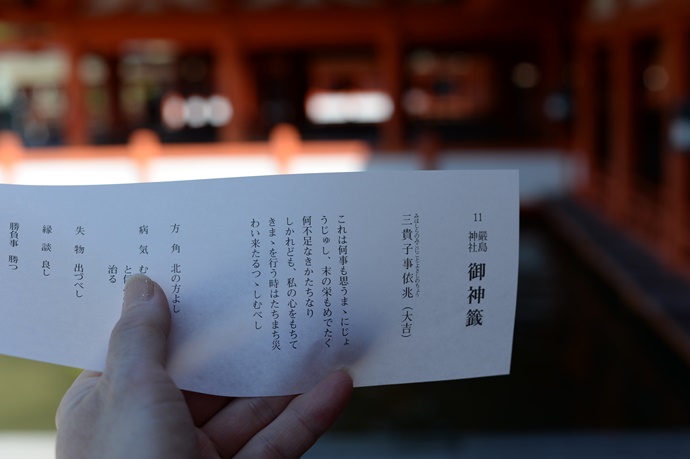 11 厳島神社 御神籤
三貴子事依兆（大吉）
これは何事も思うまゝにじょ
うじゅし、末の栄もめでたく
何不足なきかたちなり
しかれども、私の心をもちて
きまゝを行う時はたちまち災
わい来たるつゝしむべし
方角 北の方よし
病気
治る
失物 出づべし
縁談 良し
勝負事 勝つ